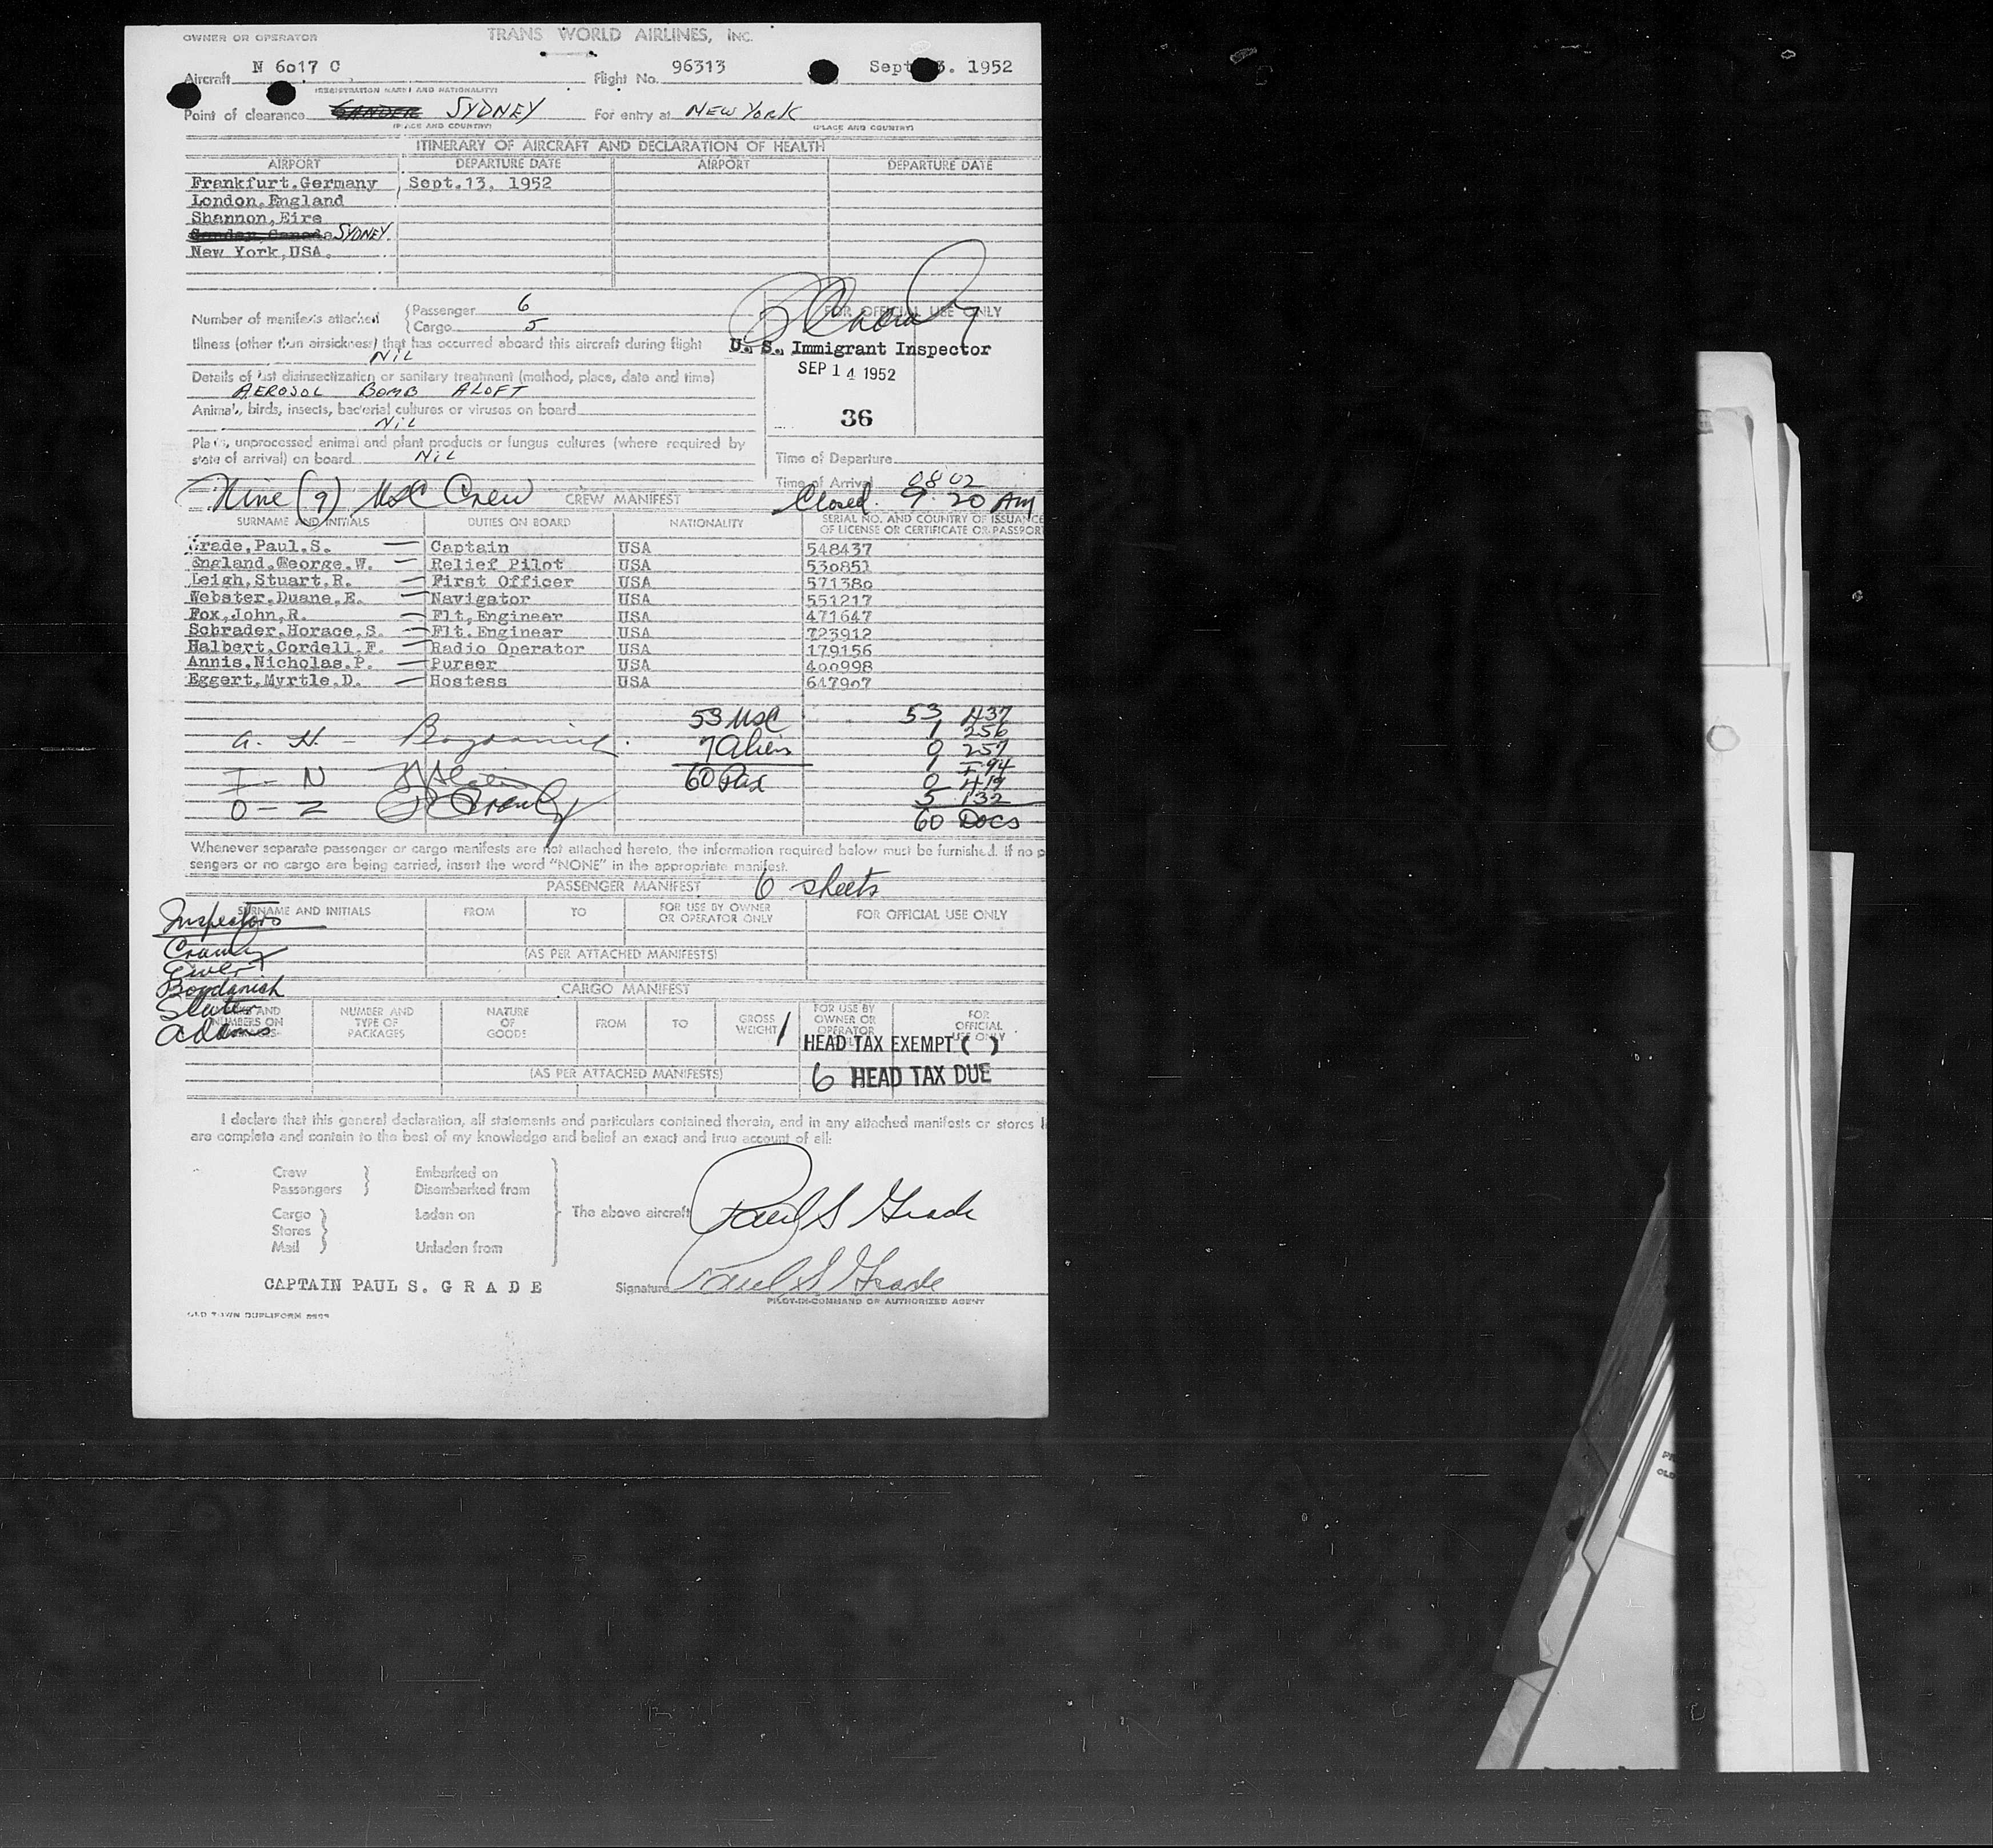 OWNER OR OPERATOR TRANS WORLD AIRLINES, INC.
Aircraft N 6017 C Flight No. 96313 Sept 3. 1952
(REGISTRATION MARKS AND NATIONALITY)
Point of clearance GANDER SYDNEY For entry at NEW YORK
(PLACE AND COUNTRY) (PLACE AND COUNTRY)
ITINERARY OF AIRCRAFT AND DECLARATION OF HEALTH
AIRPORT DEPARTURE DATE AIRPORT DEPARTURE DATE
Frankfurt.Germany Sept.13. 1952
London.England
Shannon,Eire
Gander,Canada SYDNEY
New York,USA.
Number of manifests attached Passenger 6
Cargo 5
FOR OFFICIAL USE ONLY
Illness (other than airsickness) that has occurred aboard this aircraft during flight
Nil
U. S. Immigrant Inspector
SEP 14 1952
36
Details of last disinsectization or sanitary treatment (method, place, date and time)
AEROSOL BOMB ALOFT
Animals, birds, insects, bacterial cultures or viruses on board
Nil
Plants, unprocessed animal and plant products or fungus cultures (where required by
state of arrival) on board Nil
Time of Departure
Time of Arrival 0802
Nine (9) USC Crew CREW MANIFEST Closed. 9:20 AM
SURNAME AND INITIALS DUTIES ON BOARD NATIONALITY SERIAL NO. AND COUNTRY OF ISSUANCE
OF LICENSE OR CERTIFICATE OR PASSPORT
Grade,Paul.S. — Captain USA 548437
England,George.W. — Relief Pilot USA 530851
Leigh,Stuart.R. — First Officer USA 571380
Webster,Duane,E. — Navigator USA 551217
Fox,John,R. — Flt,Engineer USA 471647
Schrader,Horace,S. — Flt.Engineer USA 723912
Halbert,Cordell,F. — Radio Operator USA 179156
Annis,Nicholas.P. — Purser USA 400998
Eggert,Myrtle,D. — Hostess USA 647907
53 USC 53 A37
1 256
a. H. — Bogdanich 7 Alien 0 257
1 I-94
I — N 60 Pax 0 419
5 132
O — Z 60 Docs
Whenever separate passenger or cargo manifests are not attached hereto, the information required below must be furnished. If no p
sengers or no cargo are being carried, insert the word "NONE" in the appropriate manifest.
PASSENGER MANIFEST 6 sheets
SURNAME AND INITIALS FROM TO FOR USE BY OWNER
OR OPERATOR ONLY FOR OFFICIAL USE ONLY
Inspectors
(AS PER ATTACHED MANIFESTS)
Bogdanich
CARGO MANIFEST
Slater
Adams
MARKS AND
NUMBERS ON
PACKAGES NUMBER AND
TYPE OF
PACKAGES NATURE
OF
GOODS FROM TO GROSS
WEIGHT FOR USE BY
OWNER OR
OPERATOR
ONLY FOR
OFFICIAL
USE ONLY
1 HEAD TAX EXEMPT ( )
(AS PER ATTACHED MANIFESTS) 6 HEAD TAX DUE
I declare that this general declaration, all statements and particulars contained therein, and in any attached manifests or stores
are complete and contain to the best of my knowledge and belief an exact and true account of all:
Crew
Passengers
Embarked on
Disembarked from
Cargo
Stores
Mail
Laden on
Unladen from
The above aircraft Paul S Grade
CAPTAIN PAUL S. G R A D E Signature Paul S Grade
PILOT-IN-COMMAND OR AUTHORIZED AGENT
OLD TOWN DUPLIFORM